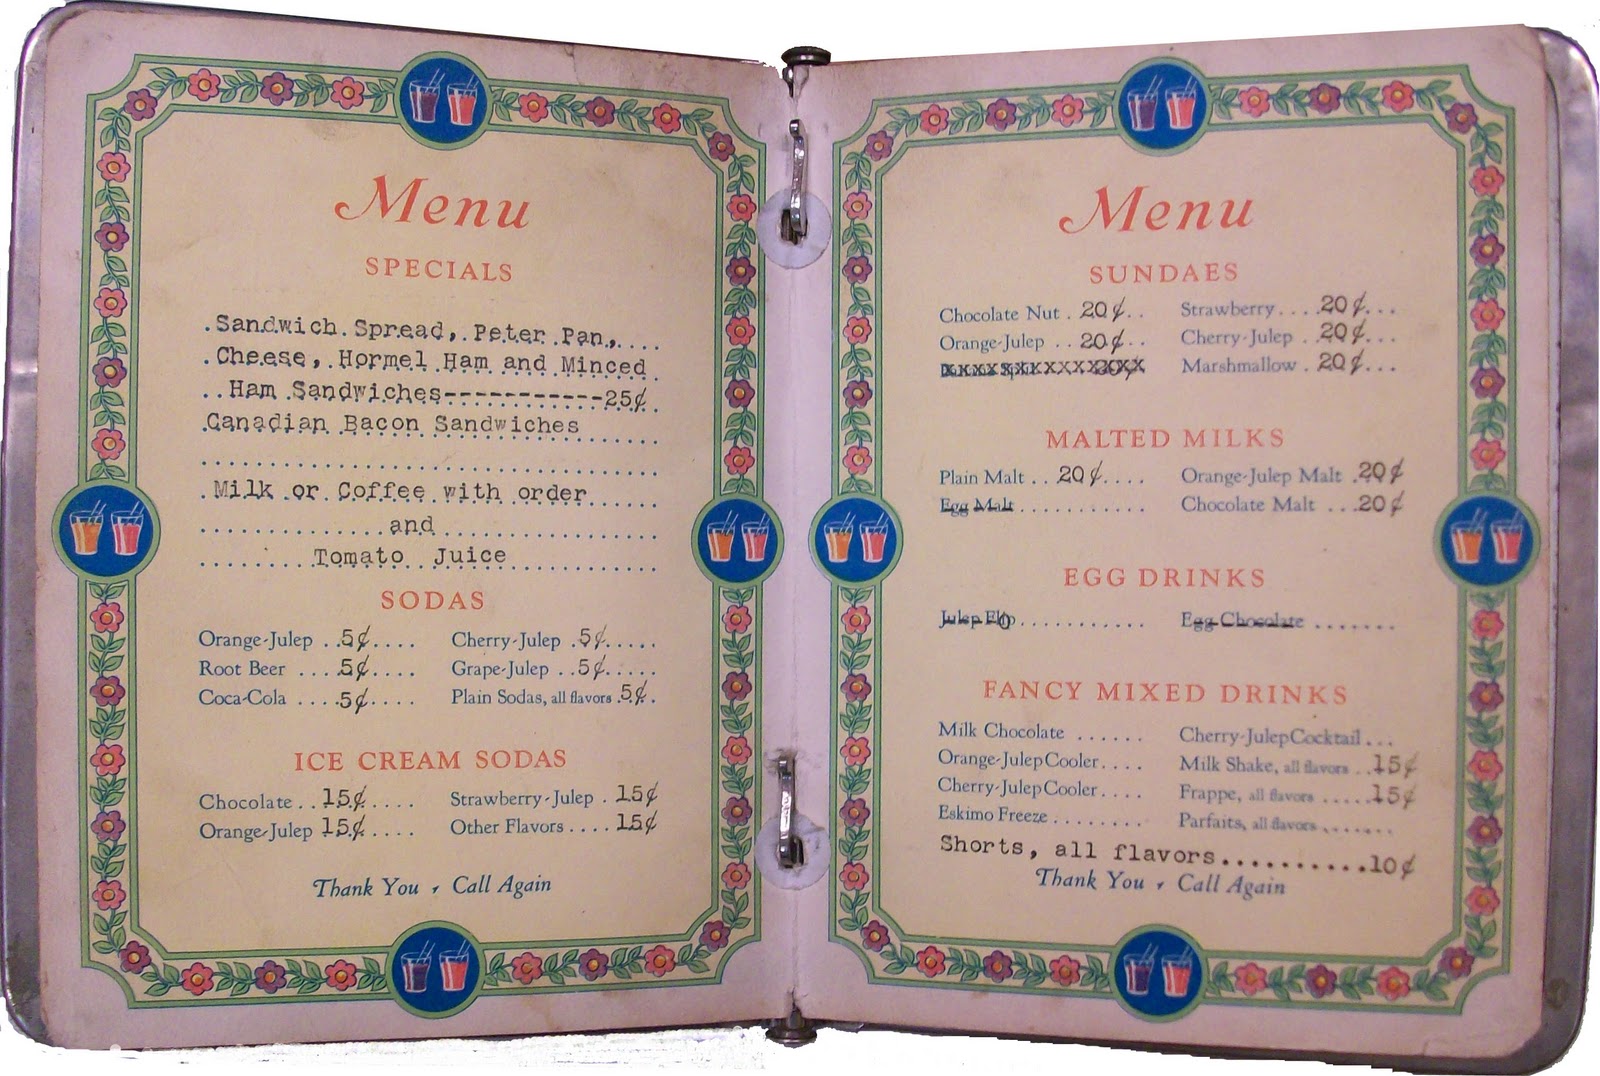 Menu
SPECIALS
.Sandwich.Spread,.Peter.Pan,....
.Cheese, Hormel Ham and Minced.
..Ham Sandwiches-----------25¢.
.Canadian Bacon Sandwiches
.Milk or Coffee with order
and
Tomato Juice
SODAS
Orange-Julep ..5¢.... Cherry-Julep .5¢.....
Root Beer ....5¢.... Grape-Julep ..5¢.....
Coca-Cola ....5¢.... Plain Sodas, all flavors .5¢..
ICE CREAM SODAS
Chocolate ..15¢.... Strawberry-Julep . 15¢
Orange-Julep 15¢.... Other Flavors .... 15¢
Thank You , Call Again
Menu
SUNDAES
Chocolate Nut . 20¢.. Strawberry....20¢...
Orange-Julep .. 20¢.. Cherry-Julep ..20¢...
Marshmallow . 20¢...
MALTED MILKS
Plain Malt .. 20¢.... Orange-Julep Malt .20¢
Egg Malt ........... Chocolate Malt ...20¢
EGG DRINKS
Julep Flip ........... Egg Chocolate .......
FANCY MIXED DRINKS
Milk Chocolate ...... Cherry-Julep Cocktail ...
Orange-Julep Cooler .... Milk Shake, all flavors ..15¢
Cherry-Julep Cooler .... Frappe, all flavors .....15¢
Eskimo Freeze ........ Parfaits, all flavors .......
Shorts, all flavors..........10¢
Thank You , Call Again